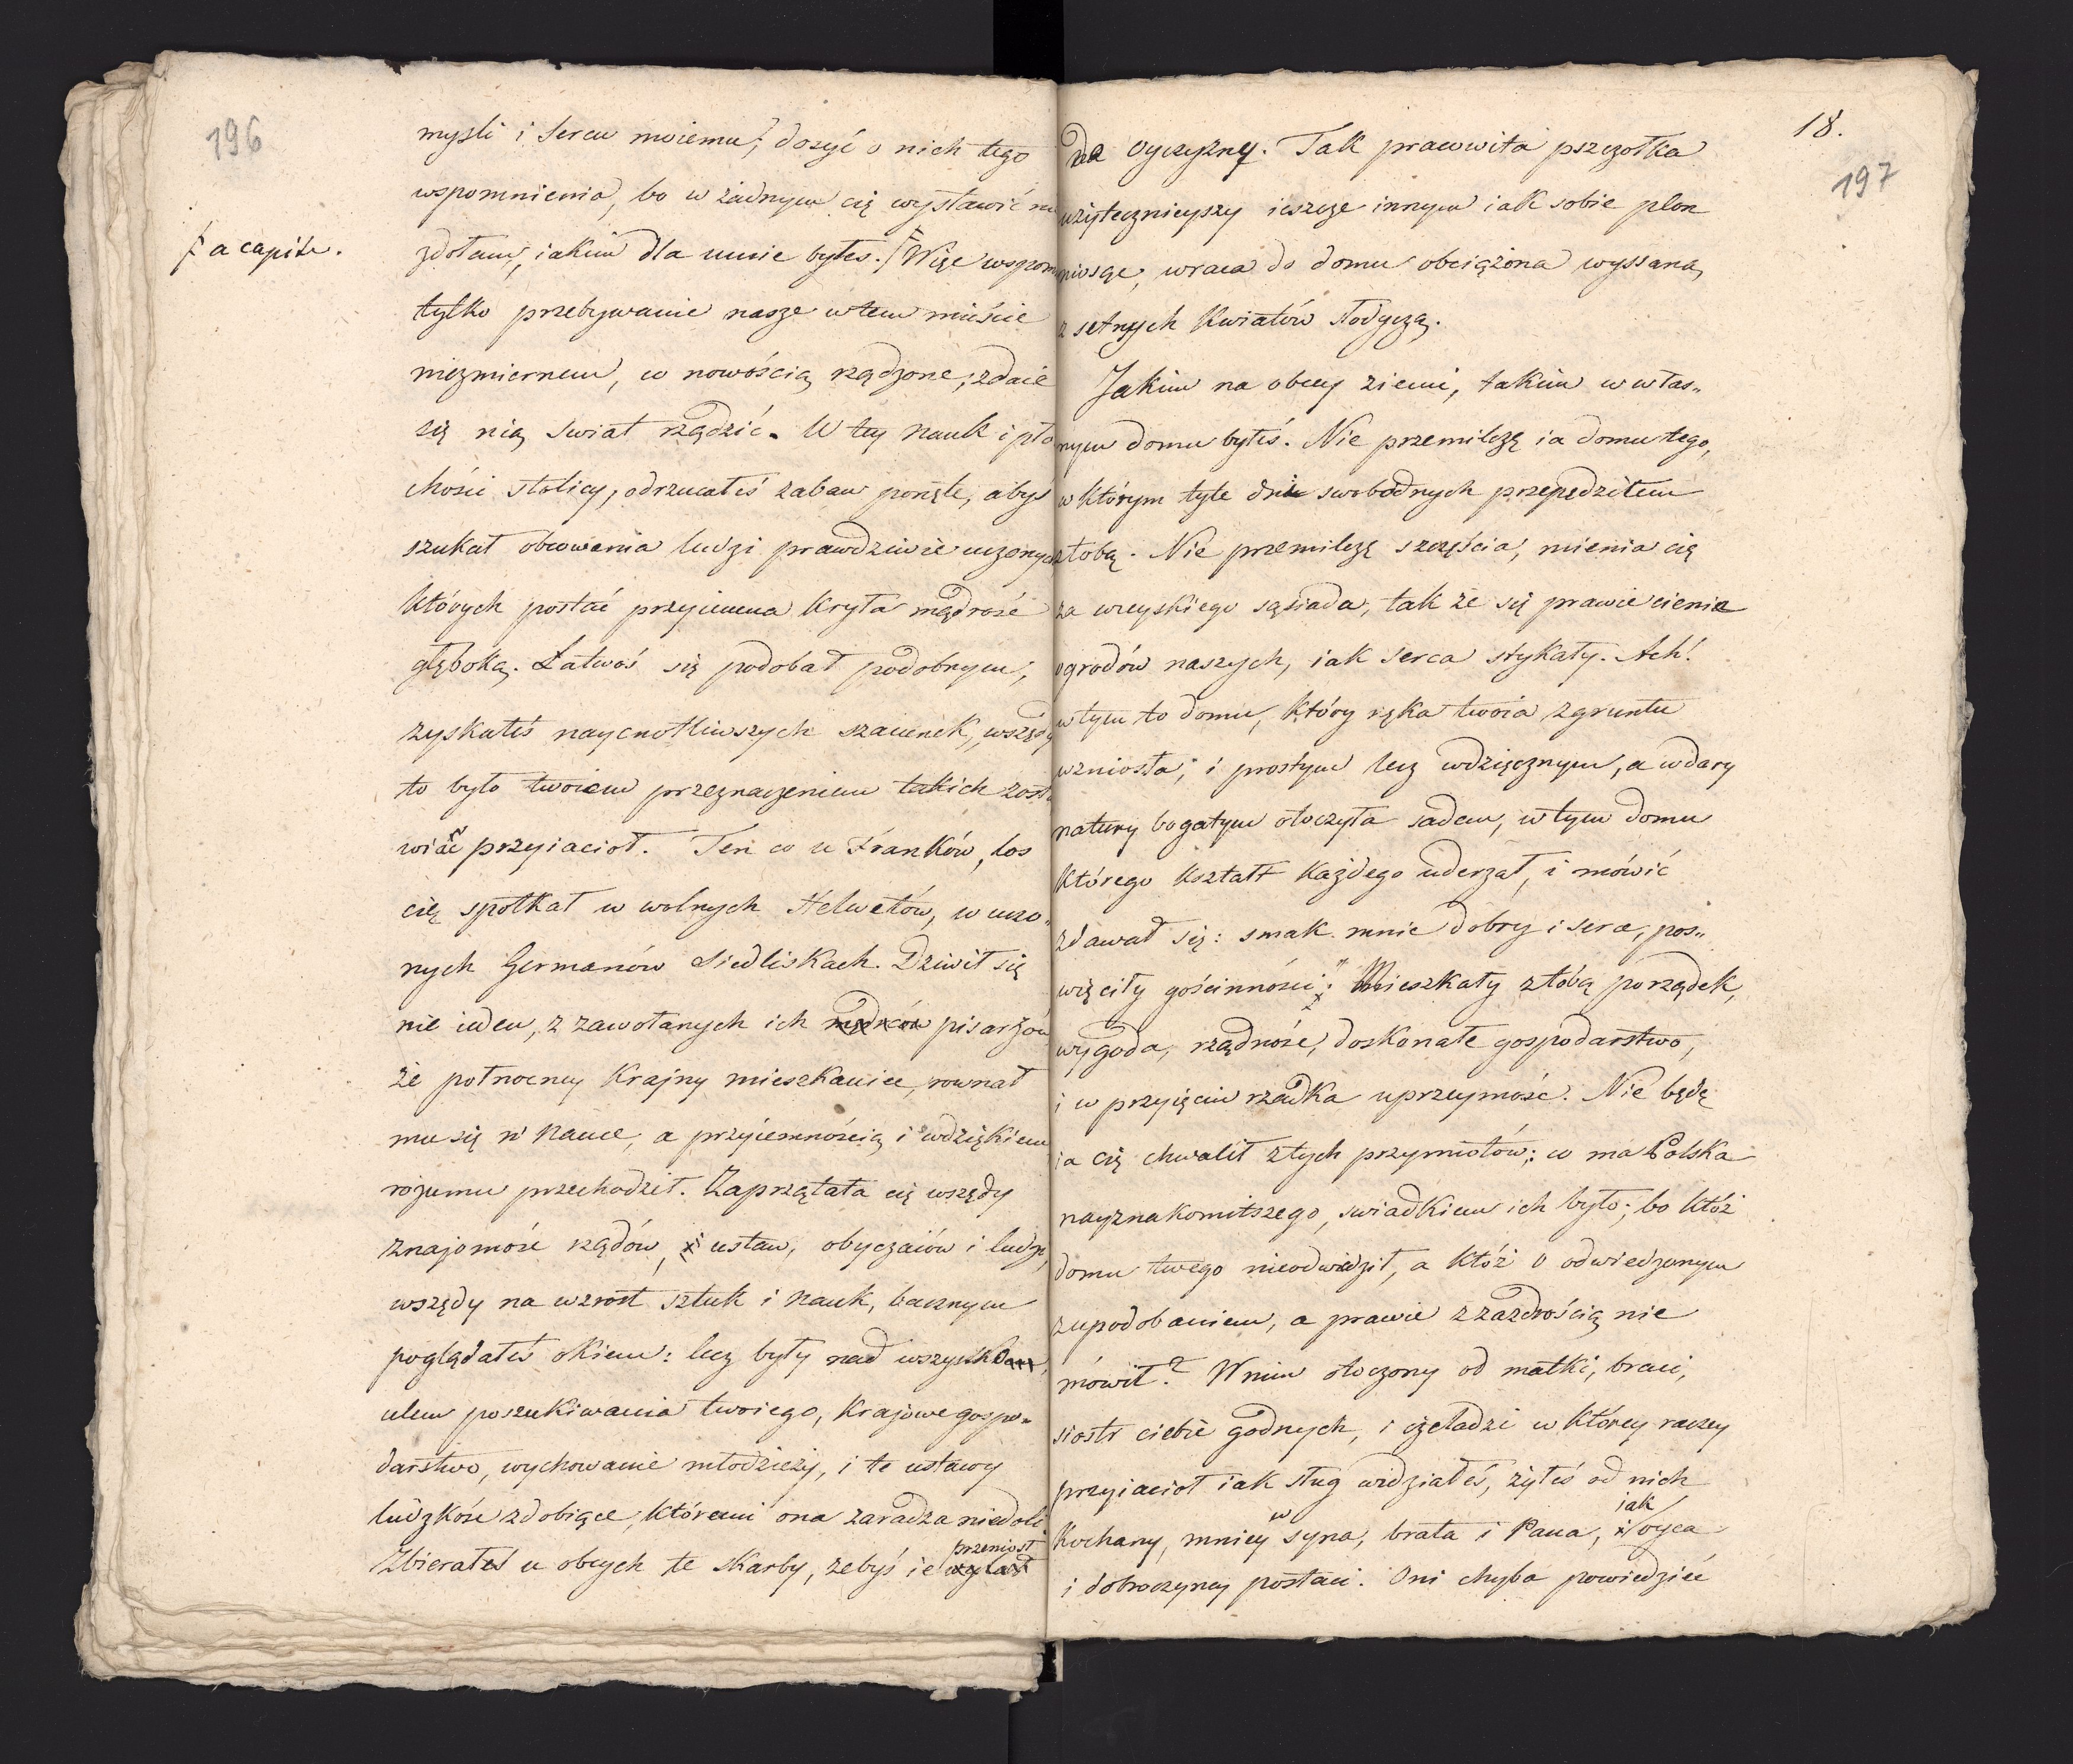 196
myśli i sercu moiemu, dosyć o nich tego
wspomnienia, bo w żadnym cię wystawić nie
ƒ a capite.
zdołam, iakim dla mnie byłes. ƒ Więc wspom
tylko przebywanie nasze w tem mieście
niezmiernem, co nowością rządzone, zdaie
się nią swiat rządzić. W tey nauk i pło
chości stolicy, odrzucałeś zabaw ponęte, abyś
szukał obcowania ludzi prawdziwie uczonych
których postać przyiemna kryła mądrość
głęboką. Łatwoś się podobał podobnym,
zyskałeś naycnotliwszych szacunek, wszędy
to było twoiem przeznaczeniem takich zosta
wiać przyiaciół. Ten co u Franków, los
cię spotkał w wolnych Helwetów, w uczo„
nych Germanów siedliskach. Dziwił się
nie ieden, z zawołanych ich mędrców pisarzów
że połnocney krajny mieszkaniec, rownał
mu się w nauce, a przyiemnością i wdziękiem
rozumu przechodził. Zaprzątała cię wszędy
znajomość rządów, i ustaw, obyczaiów i ludzi,
wszędy na wzrost sztuk i nauk, bacznym
poglądałeś okiem: lecz były nad wszystko
celem poszukiwania twoiego, krajowe gospo„
darstwo, wychowanie młodzieży, i te ustawy
ludzkość zdobiące, któremi ona zaradza niedoli.
przeniosł
Zbierałeś u obcych te skarby, żebyś ie wylał
18.
197
na oyczyznę. Tak pracowita pszczołka
użytecznieyszy ieszcze innym iak sobie plon
niosąc, wraca do domu obciążona wyssaną,
z setnych kwiatów słodyczą.
Jakim na obcey ziemi, takim w włas„
nym domu byłeś. Nie przemilczę ia domu tego,
w którym tyle dni swobodnych przepędziłem
z tobą. Nie przemilczę szczęścia, mienia cię
za wieyskiego sąsiada, tak że się prawie cienie
ogrodów naszych, iak serca stykały. Ach!
w tym to domu, który ręka twoia z gruntu
wzniosła, i prostym lecz wdzięcznym, a w dary
natury bogatym otoczyła sadem, w tym domu
którego kształt każdego uderzał, i mówić
zdawał się: smak mnie dobry i serce, poś„
więciły gościnności". Mieszkały z tobą porządek,
wygoda, rządność, doskonałe gospodarstwo,
i w przyięciu rzadka uprzeymość. Nie będę
ia cię chwalił z tych przymiotów; co ma Polska
nayznakomitszego, swiadkiem ich było; bo któż
domu twego nieodwidził, a któż o odwiedzonym
z upodobaniem, a prawie z zazdrością nie
mówił? W nim otoczony od matki, braci,
siostr ciebie godnych, i czeladzi w którey raczey
przyiacioł iak sług widziałeś, żyłeś od nich
w jak
kochany, mniey syna, brata i Pana, i oyca
i dobroczyncy postaci. Oni chyba powiedzieć